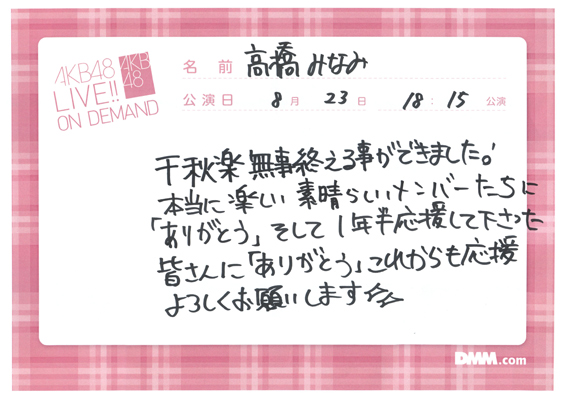 AKB48
LIVE!!
ON DEMAND
AKB
48
名前 高橋みなみ
公演日 8月 23日 18:15 公演
千秋楽無事終える事ができました!
本当に楽しい 素晴らしいメンバーたちに
「ありがとう」そして1年半応援して下さった
皆さんに「ありがとう」これからも応援
よろしくお願いします☆☆
DMM.com